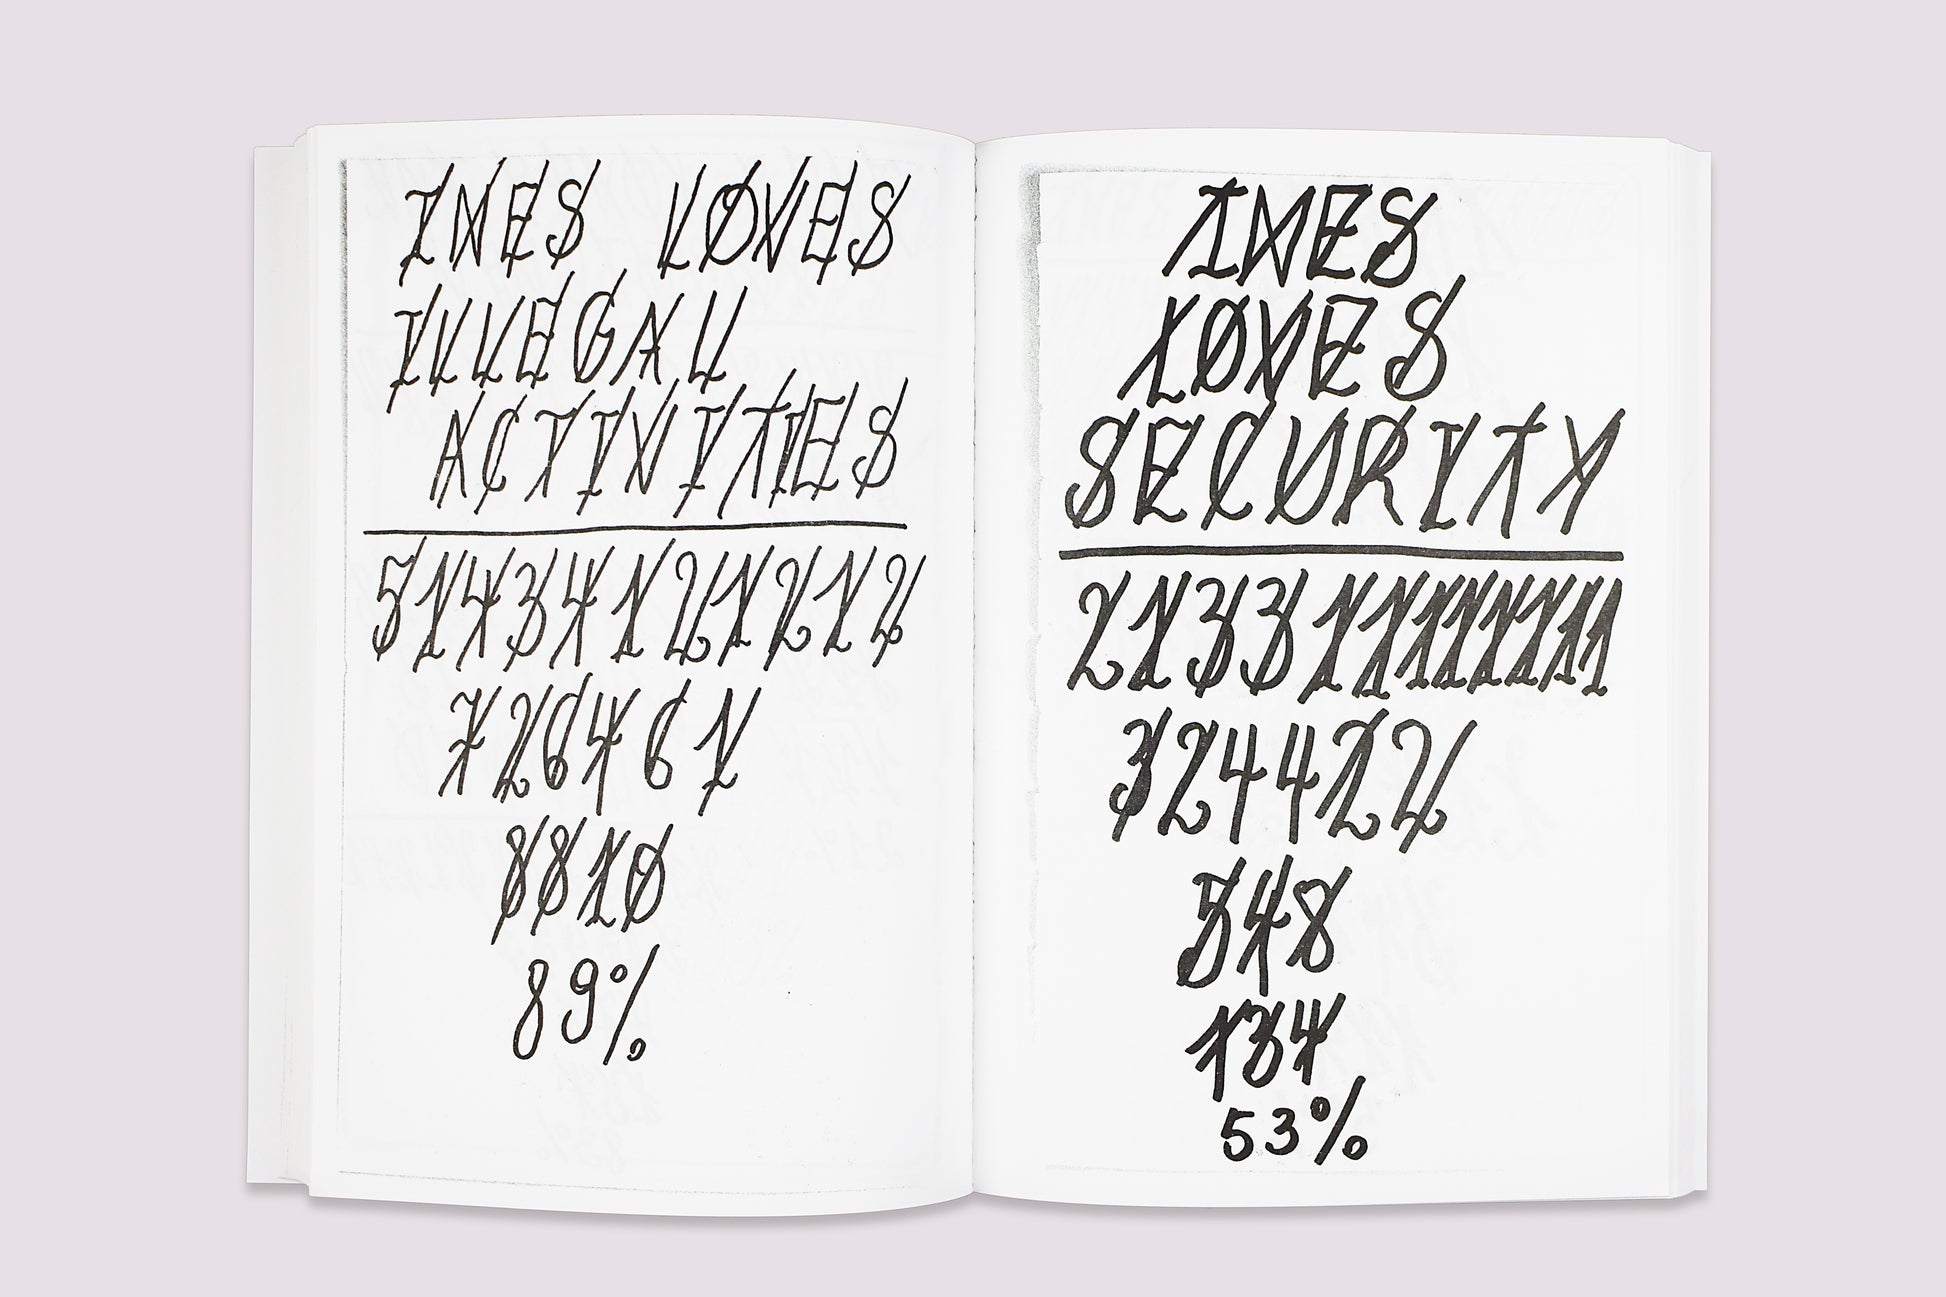 INES LOVES
ILLEGAL
ACTIVITIES
51434121212
726461
8810
89%
INES
LOVES
SECURITY
213311111111
324422
548
134
53%